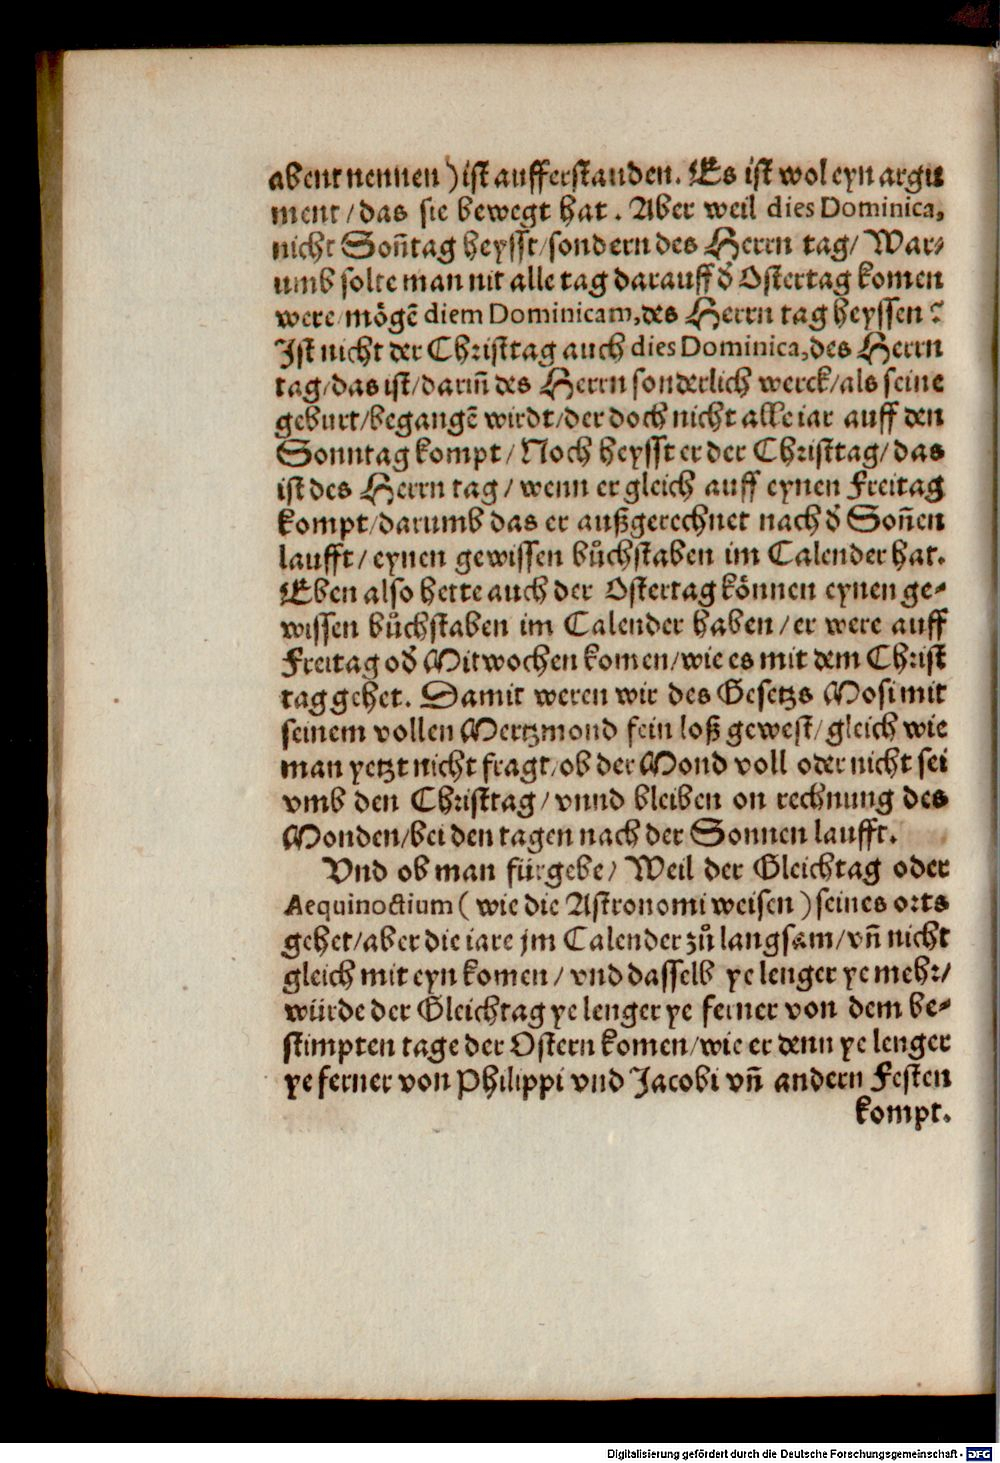 abent nennen) ist aufferstanden. Es ist wol eyn argu
ment/das sie bewegt hat. Aber weil dies Dominica,
nicht Son̄tag heysst/sondern des Herrn tag/ War⸗
umb solte man nit alle tag darauff d̕ Ostertag komen
were/mögē diem Dominicam,des Herrn tag heyssen?
Ist nicht der Christtag auch dies Dominica,des Herrn
tag/das ist/darin̄ des Herrn sonderlich werck/als seine
geburt/begangē wirdt/der doch nicht alle iar auff den
Sonntag kompt/Noch heysst er der Christtag/das
ist des Herrn tag/wenn er gleich auff eynen Freitag
kompt/darumb das er außgerechnet nach d̕ Son̄en
laufft/eynen gewissen bůchstaben im Calender hat.
Eben also hette auch der Ostertag können eynen ge⸗
wissen bůchstaben im Calender haben/er were auff
Freitag od̕ Mitwochen komen/wie es mit dem Christ
tag gehet. Damit weren wir des Gesetzs Mosi mit
seinem vollen Mertzmond fein loß gewest/gleich wie
man yetzt nicht fragt/ob der Mond voll oder nicht sei
vmb den Christtag/vnnd bleiben on rechnung des
Monden/bei den tagen nach der Sonnen laufft.
Vnd ob man fürgebe/ Weil der Gleichtag oder
Aequinoctium (wie die Astronomi weisen) seines orts
gehet/aber die iare jm Calender zů langsam/vn̄ nicht
gleich mit eyn komen/vnd dasselb ye lenger ye mehr/
würde der Gleichtag ye lenger ye ferner von dem be⸗
stimpten tage der Ostern komen/wie er denn ye lenger
ye ferner von Philippi vnd Jacobi vn̄ andern Festen
kompt.
Digitalisierung gefördert durch die Deutsche Forschungsgemeinschaft - DFG